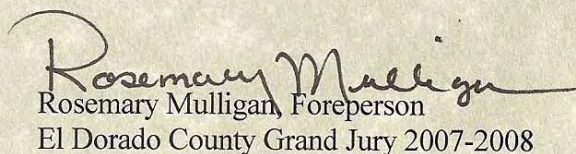 Rosemary Mulligan
Rosemary Mulligan, Foreperson
El Dorado County Grand Jury 2007-2008